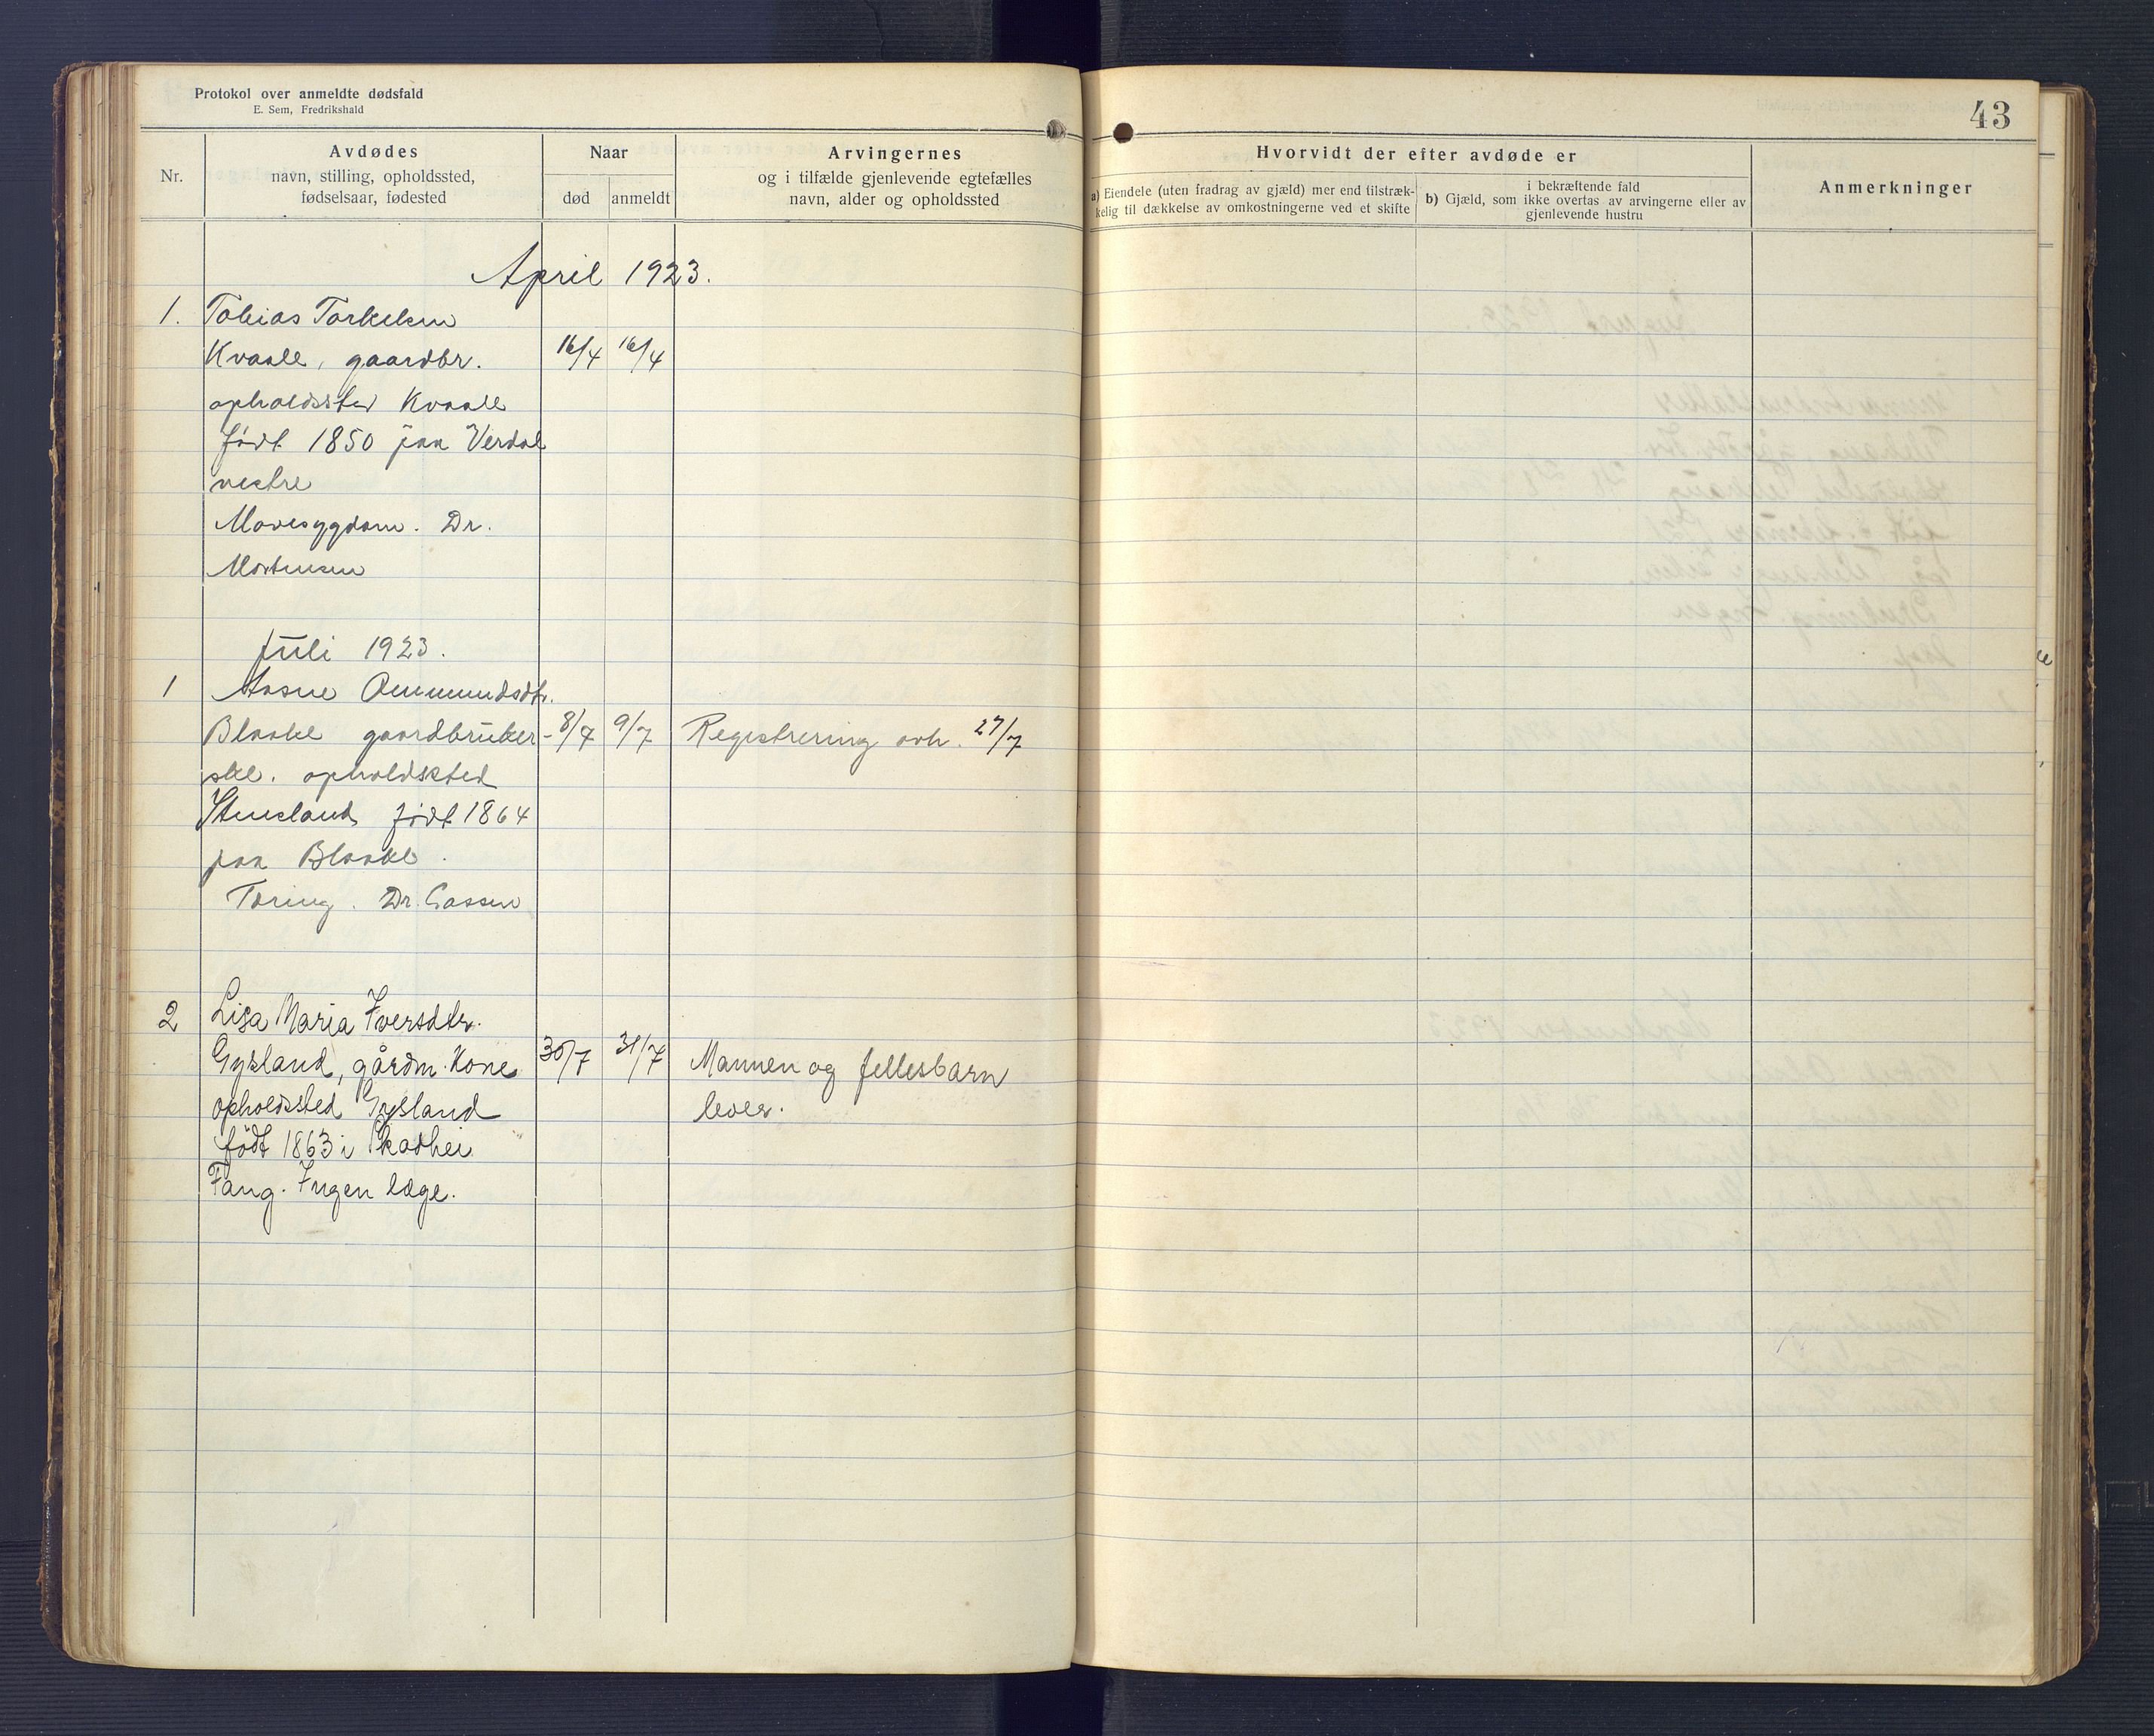 Protokol over anmeldte dødsfald
E. Sem, Fredrikshald
43
Nr.
Avdødes
navn, stilling, opholdssted,
fødselsaar, fødested
Naar
død
anmeldt
Arvingernes
og i tilfælde gjenlevende egtefælles
navn, alder og opholdssted
Hvorvidt der efter avdøde er
a) Eiendele (uten fradrag av gjæld) mer end tilstræk-
kelig til dækkelse av omkostningerne ved et skifte
i bekræftende fald
b) Gjæld, som ikke overtas av arvingerne eller av
gjenlevende hustru
Anmerkninger
April 1923.
1. Tobias Torkelsen
Kvaale, gaardbr. 16/4 16/4
opholdssted Kvaale
født 1850 paa Verdal
vestre
Mavesygdom. Dr.
Mortensen
Juli 1923.
1 Aasne Ommundsdtr.
Blaake gaardbruker- 8/7 9/7 Registrering avh. 27/7
ske. opholdssted
Stensland født 1864
paa Blaake.
Tæring. Dr.
2 Lisa Maria Iversdtr.
Gysland, gårdm. Kone 30/7 31/7 Mannen og fellesbarn
opholdssted Gysland lever.
født 1863 i Skadhei
Tæng. Ingen læge.